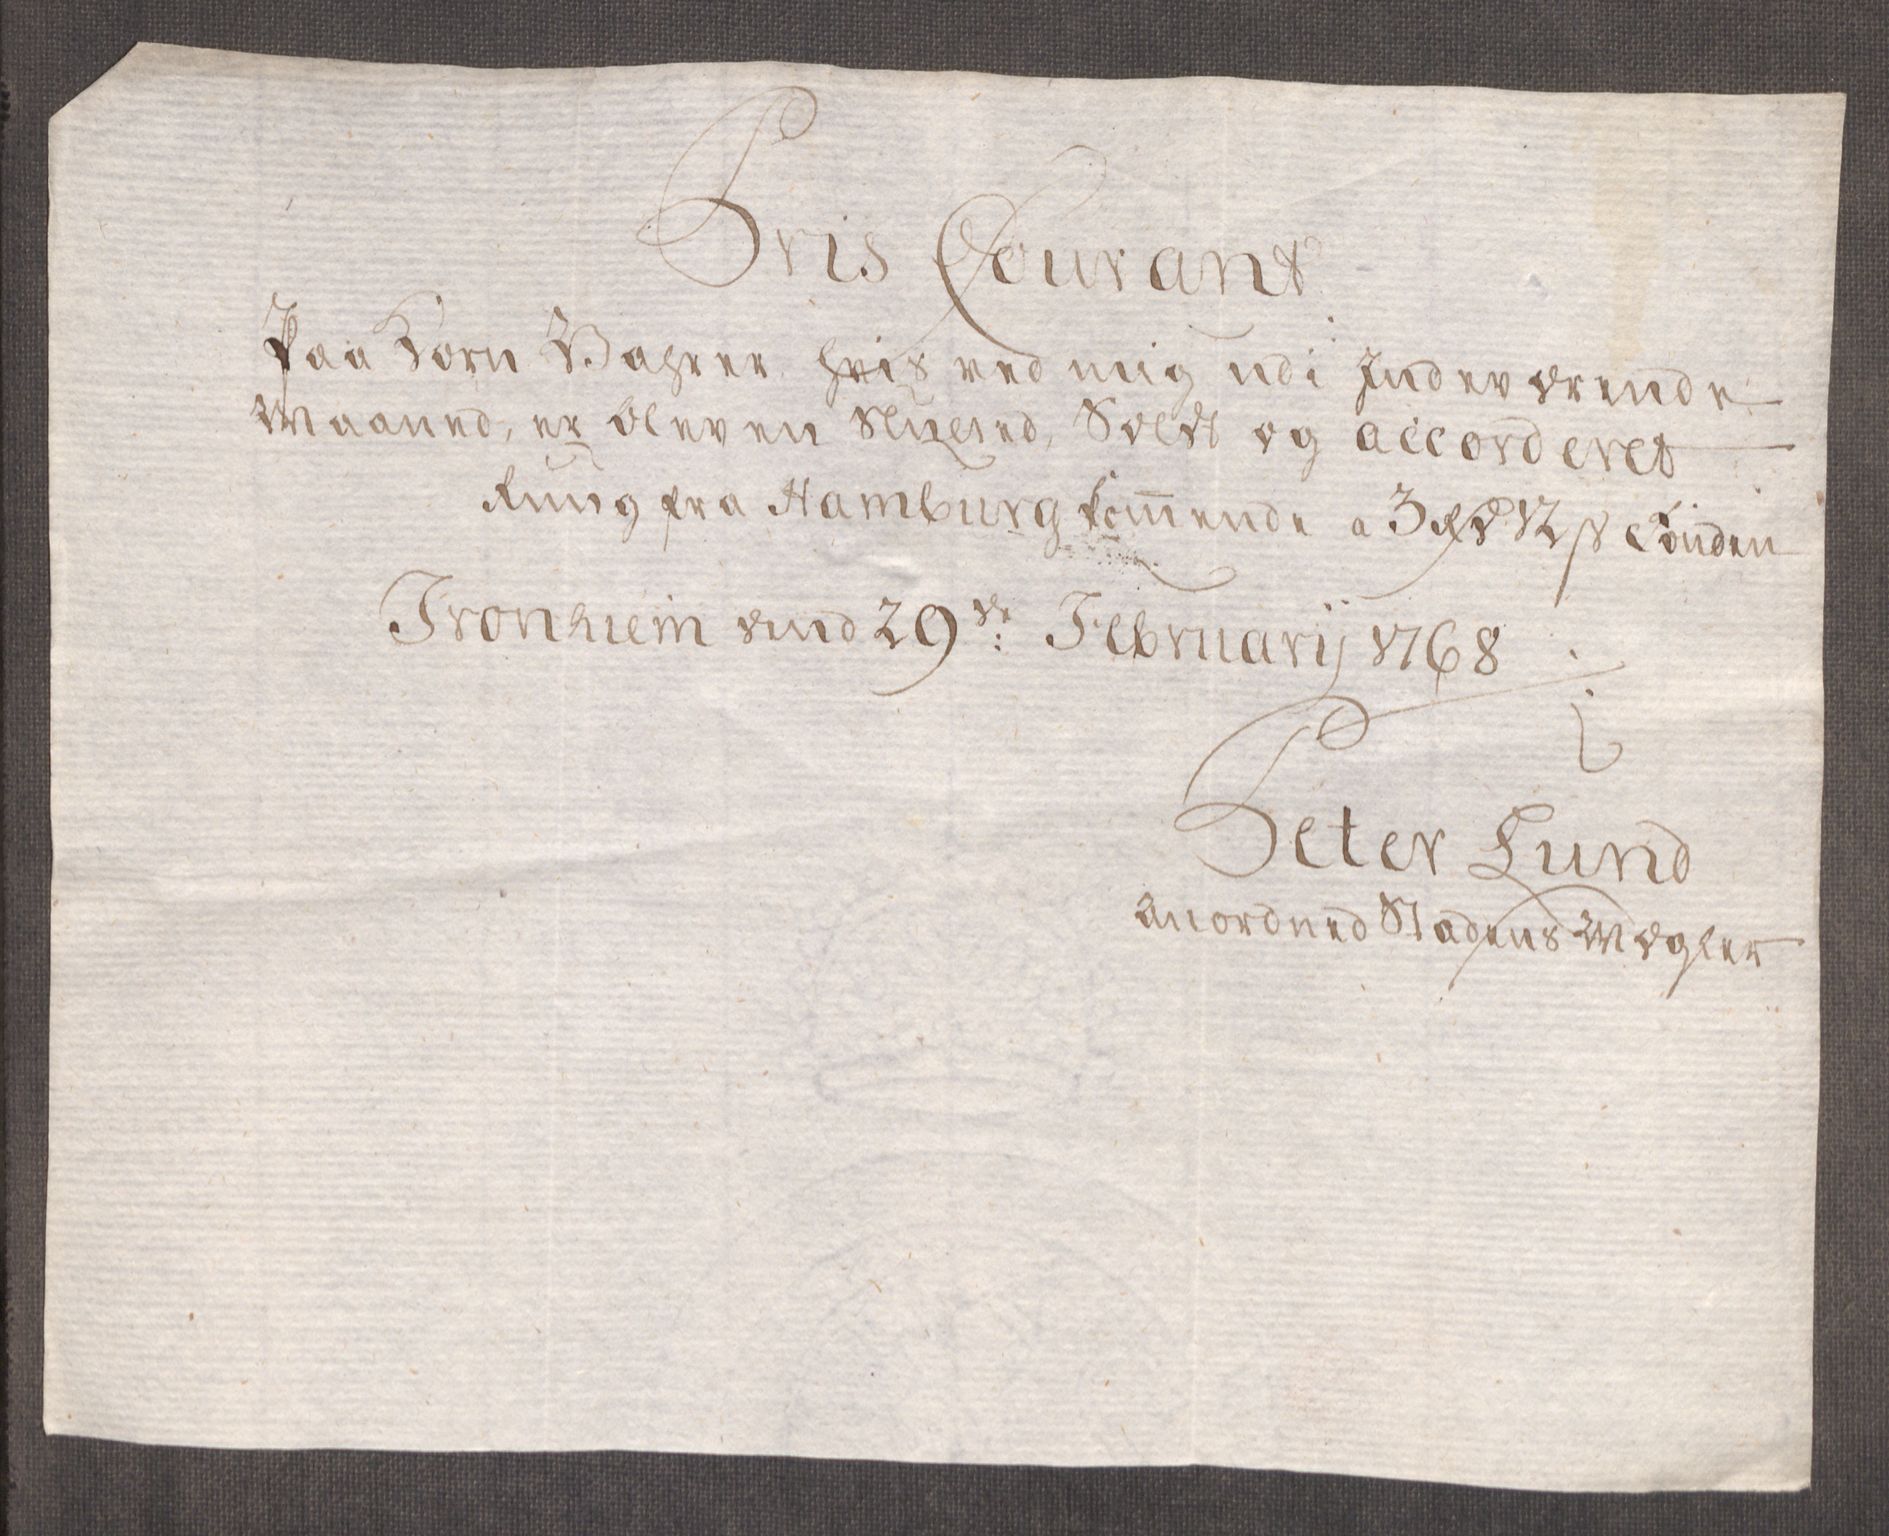 Pris Courant
Paa Korn Wahrer hvis ved mig udi Indeværende
Maaned, er bleven Sluted, Soldt og accorderet
Rug fra Hamburg kom̅ende a 3 Rd 12 s Tønden
Tronhiem dend 29de: Februarij 1768
Peter Lund
Anordned Stadens Mægler